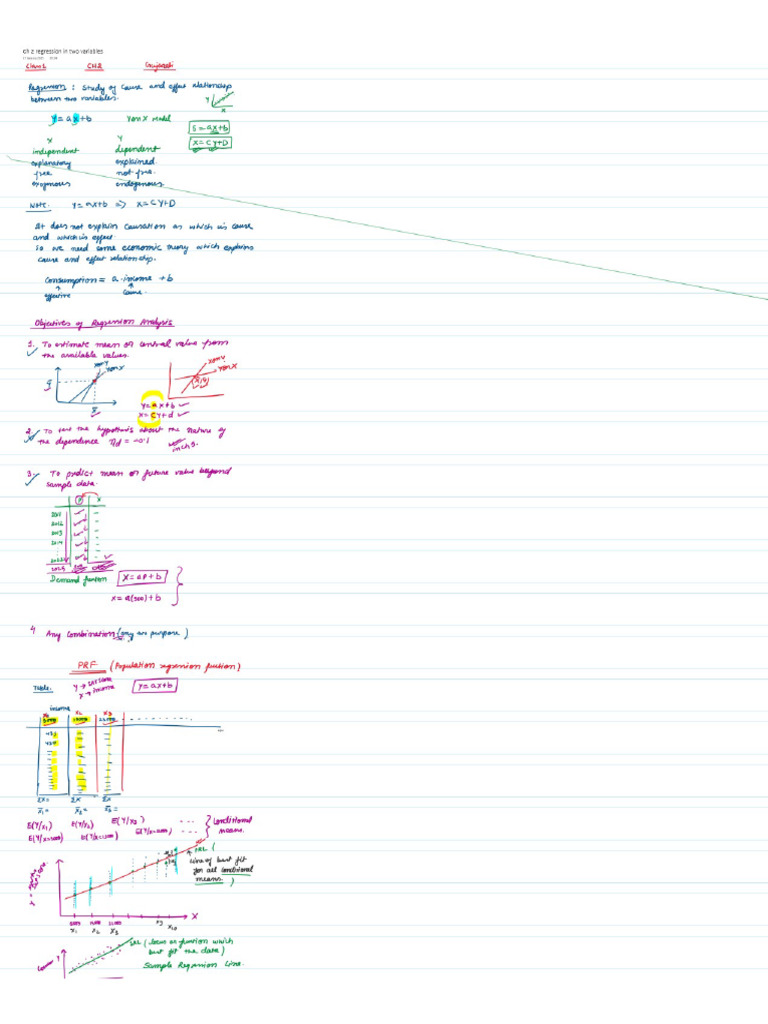 ch 2 regression in two variables
Class 1 CH2 Gujarati
Regression : Study of cause and effect relationship
between two variables.
Y
X
y = ax+b Y on X model
S = ax+b
X = CY+D
X Y
independent dependent
explanatory explained
free not free.
exogenous endogenous.
Note. y = ax+b => X = CY+D
It does not explain causation as which is cause
and which is effect.
So we need some economic theory which explains
cause and effect relationship.
Consumption = a.income + b
effective cause.
Objectives of Regression Analysis
1. To estimate mean or central value from
the available values.
X on Y
Y on X
X on Y
Y on X
y = a x+b
x = c y+d
2. To test the hypothesis about the nature of
the dependence
in ch 5.
3. To predict mean or future value beyond
sample data.
P X
2011
2012
2013
2014
2022
2023
Demand function X = aP+b
X = a(500)+b
4 Any Combination (any two purpose)
PRF (Population regression function)
Table. X → income y = ax+b
income
X1 X2 X3
ΣX= ΣX ΣX
x̄1= x̄2= x̄3=
E(Y/X1) E(Y/X2) E(Y/X3) ... Conditional
means.
PRL (
Line of best fit
for all conditional
means. )
X
X1 X2 X3 X10
SRL (locus or function which
best fit the data)
Y
Sample Regression Line.